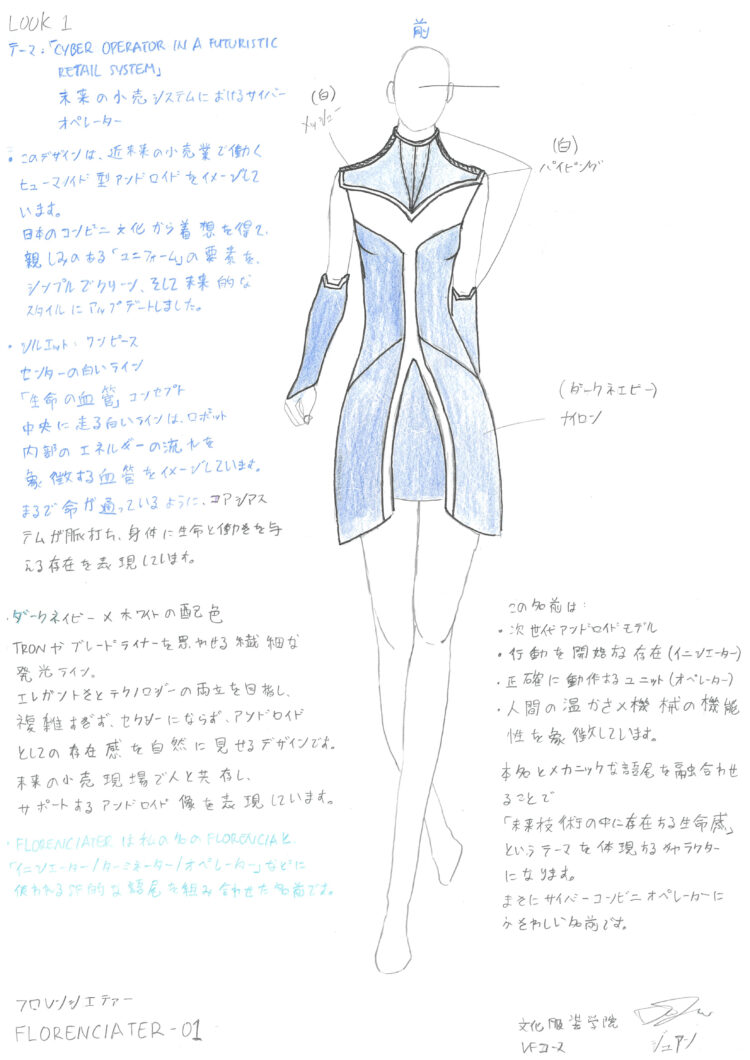 LOOK 1
テーマ:「CYBER OPERATOR IN A FUTURISTIC
RETAIL SYSTEM」
未来の小売システムにおけるサイバー
オペレーター
• このデザインは、近未来の小売業で働く
ヒューマノイド型アンドロイドをイメージして
います。
日本のコンビニ文化から着想を得て、
親しみのある「ユニフォーム」の要素を、
シンプルでクリーン、そして未来的な
スタイルにアップデートしました。
• シルエット: ワンピース
センターの白いライン
「生命の血管」コンセプト
中央に走る白いラインは、ロボット
内部のエネルギーの流れを
象徴する血管をイメージしています。
まるで命が通っているように、コアシアス
テムが脈打ち、身体に生命と働きを与
える存在を表現しています。
• ダークネイビー×ホワイトの配色
TRONやブレードライナーを思わせる繊細な
発光ライン。
エレガントさとテクノロジーの両立を目指し、
複雑すぎず、セクシーにならず、アンドロイド
としての存在感を自然に見せるデザインです。
未来の小売現場で人と共存し、
サポートするアンドロイド像を表現しています。
• FLORENCIATERは私の名のFLORENCIAと
「イニシエーター/ターミネーター/オペレーター」などに
使われるSF的な語尾を組み合わせた名前です。
フロレンシエティアー
FLORENCIATER-01
前
(白)
メッシュ
(白)
パイピング
(ダークネエビー)
ナイロン
この名前は:
• 次世代アンドロイドモデル
• 行動を開始する存在(イニシエーター)
• 正確に動作するユニット(オペレーター)
• 人間の温かさ×機械の機能
性を象徴しています。
本名とメカニックな語尾を融合わせ
ることで
「未来技術の中に存在する生命感」
というテーマを体現するキャラクター
になります。
まさにサイバーコンビニオペレーターに
ふさわしい名前です。
文化服装学院
VFコース
シュアン